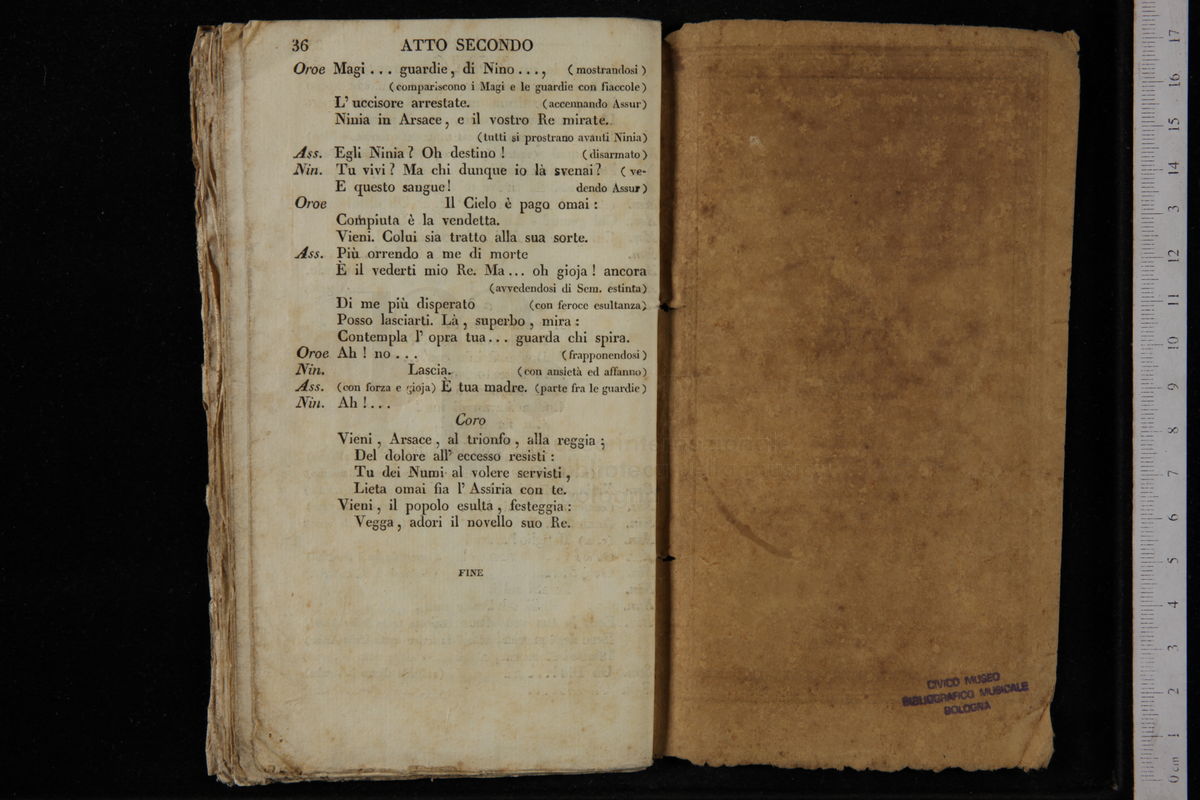 36 ATTO SECONDO
Oroe Magi . . . guardie, di Nino . . . , (mostrandosi)
(compariscono i Magi e le guardie con fiaccole)
L' uccisore arrestate. (accennando Assur)
Ninia in Arsace, e il vostro Re mirate.
(tutti si prostrano avanti Ninia)
Ass. Egli Ninia? Oh destino! (disarmato)
Nin. Tu vivi? Ma chi dunque io là svenai? (ve-
E questo sangue! dendo Assur)
Oroe Il Cielo è pago omai:
Compiuta è la vendetta.
Vieni. Colui sia tratto alla sua sorte.
Ass. Più orrendo a me di morte
È il vederti mio Re. Ma... oh gioja! ancora
(avvedendosi di Sem. estinta)
Di me più disperato (con feroce esultanza)
Posso lasciarti. Là, superbo, mira:
Contempla l' opra tua... guarda chi spira.
Oroe Ah! no . . . (frapponendosi)
Nin. Lascia. (con ansietà ed affanno)
Ass. (con forza e gioja) È tua madre. (parte fra le guardie)
Nin. Ah!...
Coro
Vieni, Arsace, al trionfo, alla reggia;
Del dolore all' eccesso resisti:
Tu dei Numi al volere servisti,
Lieta omai fia l' Assiria con te.
Vieni, il popolo esulta, festeggia:
Vegga, adori il novello suo Re.
FINE
CIVICO MUSEO
BIBLIOGRAFICO MUSICALE
BOLOGNA
0 cm 1 2 3 4 5 6 7 8 9 10 11 12 3 14 15 16 17